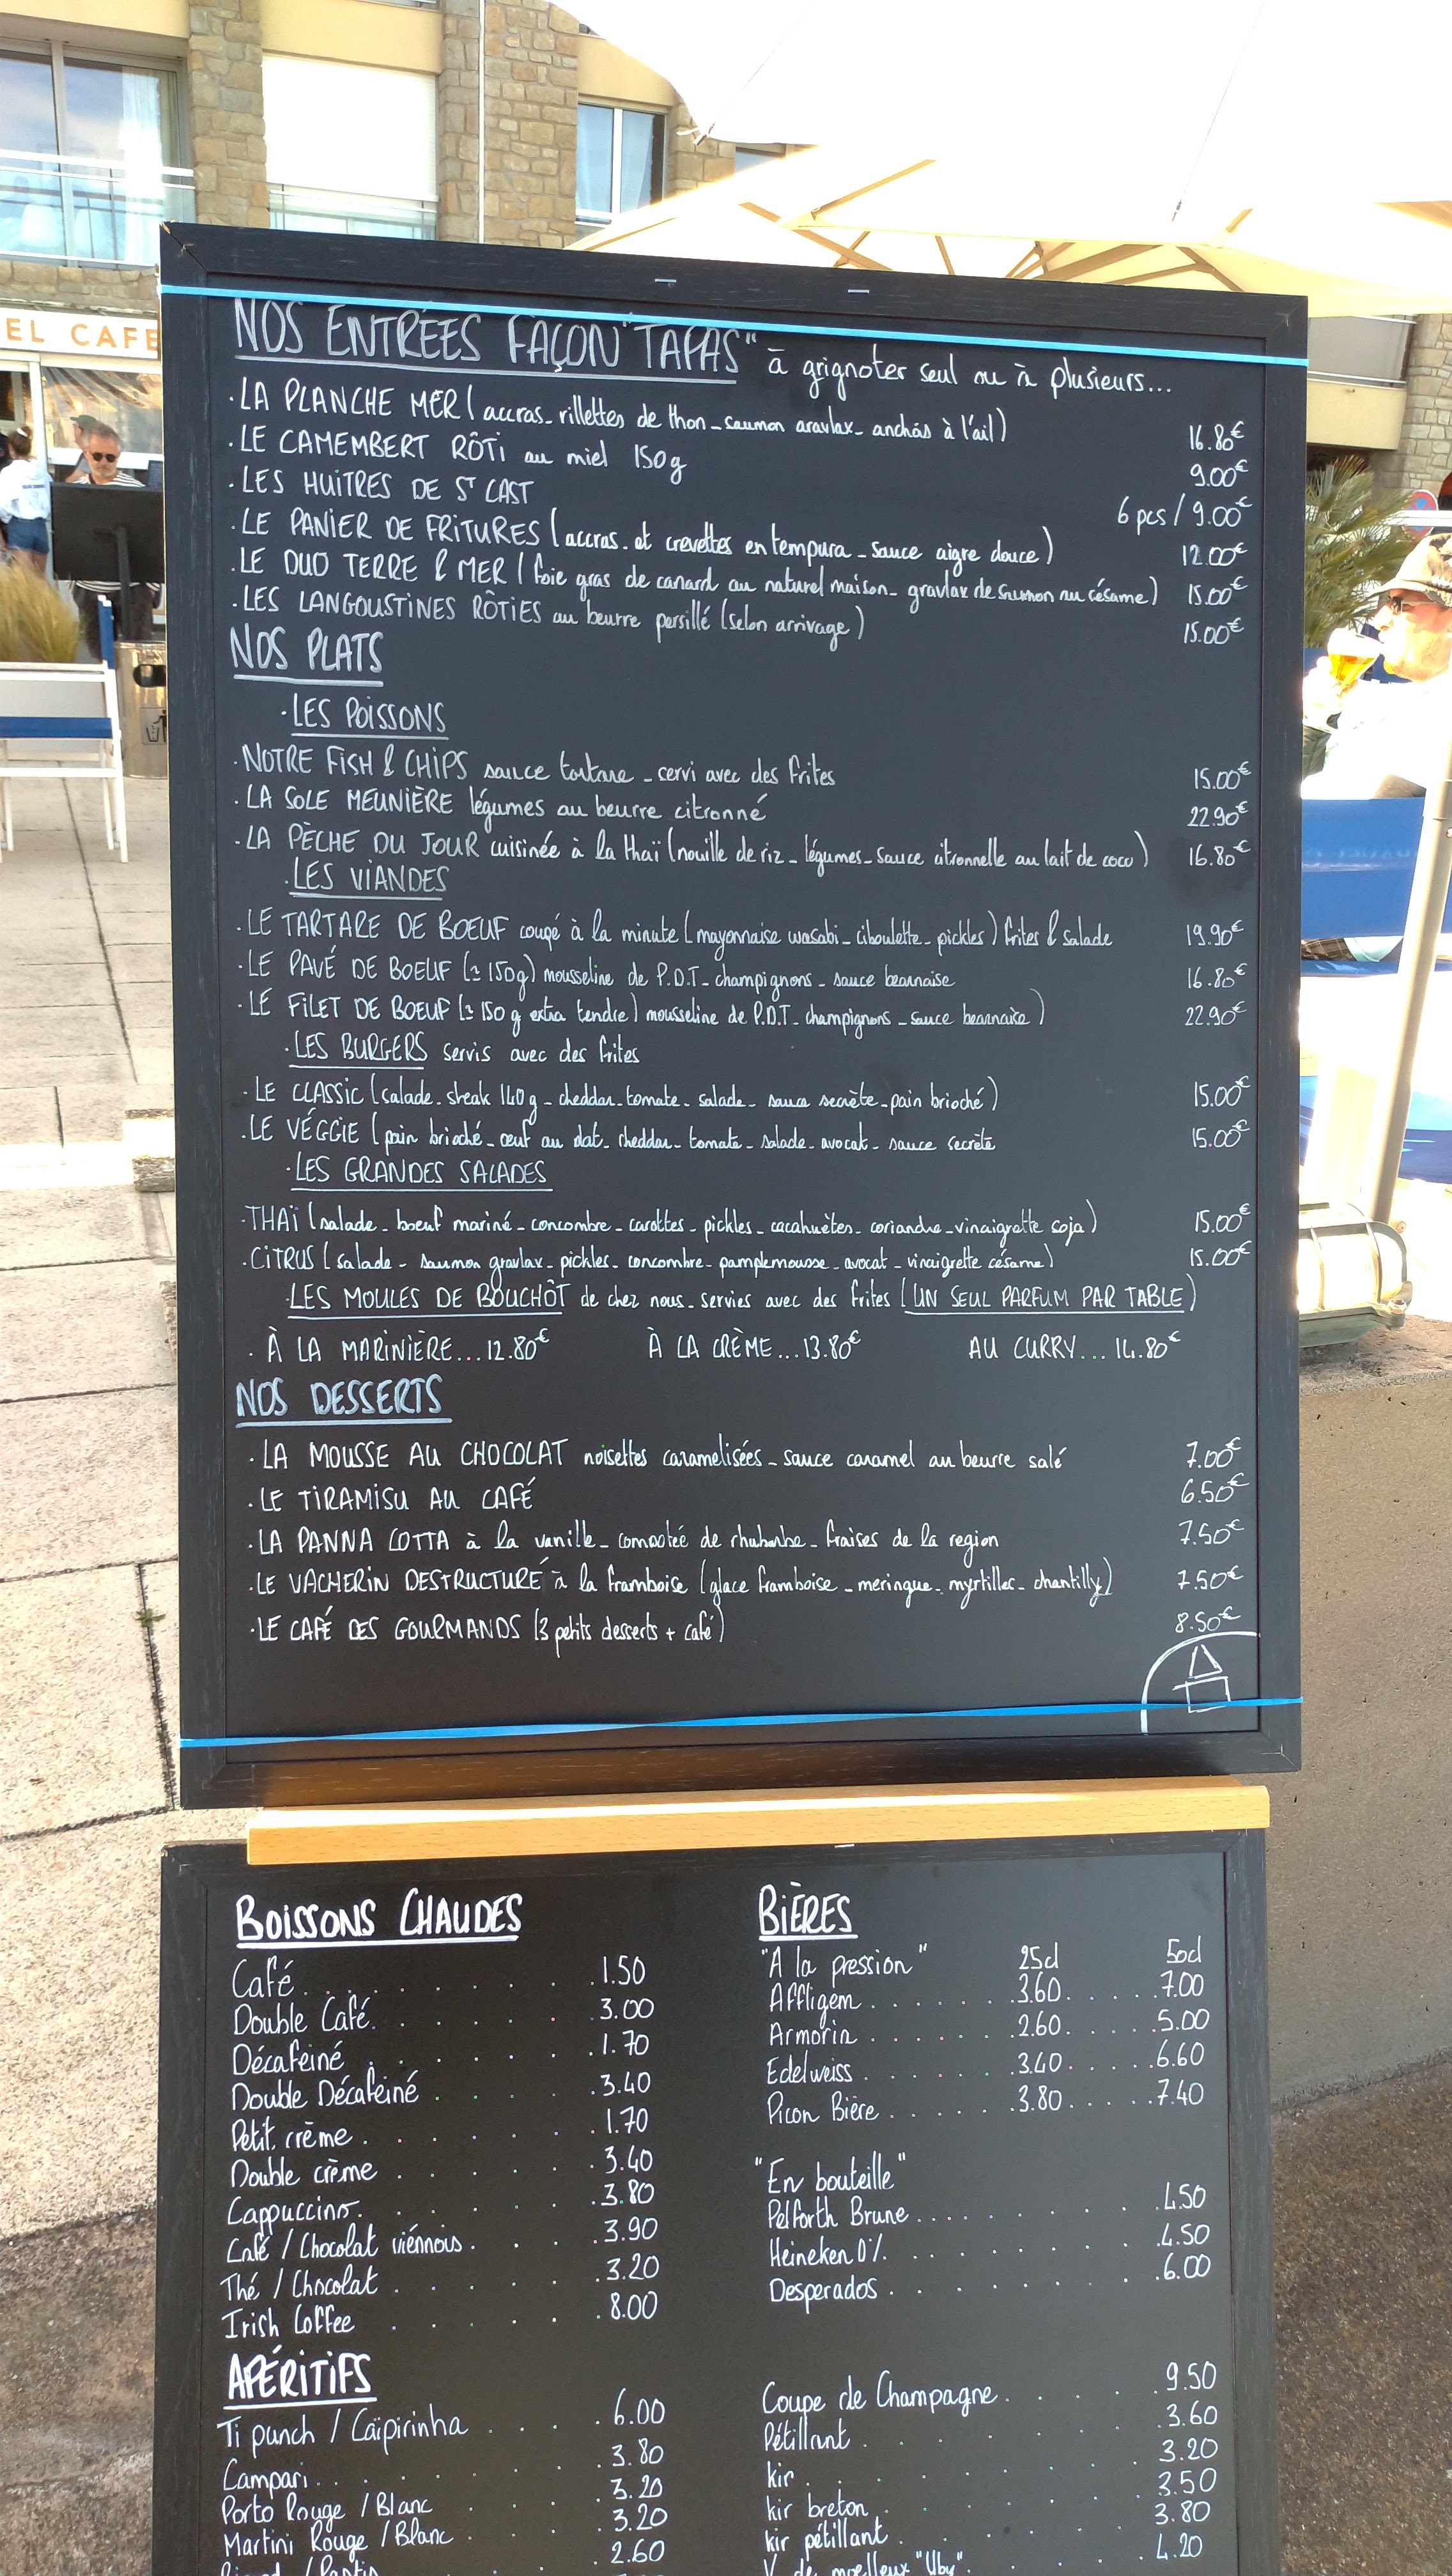 EL CAFE
NOS ENTRÉES FAÇON "TAPAS" à grignoter seul ou à plusieurs...
· LA PLANCHE MER ( accras - rillettes de thon - saumon aravlax - anchois à l'ail ) 16.80€
· LE CAMEMBERT RÔTI au miel 150g 9.00€
· LES HUITRES DE ST CAST 6 pcs / 9.00€
· LE PANIER DE FRITURES ( accras. et crevettes en tempura - sauce aigre douce ) 12.00€
· LE DUO TERRE & MER ( foie gras de canard au naturel maison - gravlax de saumon au césame ) 15.00€
· LES LANGOUSTINES RÔTIES au beurre persillé (selon arrivage) 15.00€
NOS PLATS
· LES POISSONS
· NOTRE FISH & CHIPS sauce tartare - servi avec des frites 15.00€
· LA SOLE MEUNIÈRE légumes au beurre citronné 22.90€
· LA PÈCHE DU JOUR cuisinée à la thaï (nouille de riz - légumes - sauce citronnelle au lait de coco ) 16.80€
· LES VIANDES
· LE TARTARE DE BOEUF coupé à la minute ( mayonnaise wasabi - ciboulette - pickles ) frites & salade 19.90€
· LE PAVÉ DE BOEUF (± 150g) mousseline de P.D.T - champignons - sauce bearnaise 16.80€
· LE FILET DE BOEUF (± 150g extra tendre ) mousseline de P.D.T - champignons - sauce bearnaise ) 22.90€
· LES BURGERS servis avec des frites
· LE CLASSIC ( salade - steak 140g - cheddar - tomate - salade - sauce secrète - pain brioché ) 15.00€
· LE VÉGGIE ( pain brioché - oeuf au plat - cheddar - tomate - salade - avocat - sauce secrète 15.00€
· LES GRANDES SALADES
· THAÏ ( salade - boeuf mariné - concombre - carottes - pickles - cacahuètes - coriandre - vinaigrette soja ) 15.00€
· CITRUS ( salade - saumon gravlax - pickles - concombre - pamplemousse - avocat - vinaigrette césame ) 15.00€
· LES MOULES DE BOUCHÔT de chez nous - servies avec des frites ( UN SEUL PARFUM PAR TABLE )
· À LA MARINIÈRE...12.80€ À LA CRÈME...13.80€ AU CURRY... 14.80€
NOS DESSERTS
· LA MOUSSE AU CHOCOLAT noisettes caramelisées - sauce caramel au beurre salé 7.00€
· LE TIRAMISU AU CAFÉ 6.50€
· LA PANNA COTTA à la vanille - compotée de rhubarbe - fraises de la region 7.50€
· LE VACHERIN DESTRUCTURÉ à la framboise (glace framboise - meringue - myrtilles - chantilly) 7.50€
· LE CAFÉ DES GOURMANDS (3 petits desserts + café ) 8.50€
BOISSONS CHAUDES
Café 1.50
Double Café 3.00
Décafeiné 1.70
Double Décafeiné 3.40
Petit crème 1.70
Double crème 3.40
Cappuccino 3.80
Café / Chocolat viénnois 3.90
Thé / Chocolat 3.20
Irish Coffee 8.00
APÉRITIFS
Ti punch / Caïpirinha 6.00
Campari 3.80
Porto Rouge / Blanc 3.20
Martini Rouge / Blanc 3.20
2.60
BIÈRES
"A la pression" 25cl 50cl
Affligem 3.60 7.00
Armorin 2.60 5.00
Edelweiss 3.40 6.60
Picon Bière 3.80 7.40
"En bouteille"
Pelforth Brune 4.50
Heineken 0% 4.50
Desperados 6.00
Coupe de Champagne 9.50
Pétillant 3.60
kir 3.20
kir breton 3.50
kir pétillant 3.80
V. de moelleux "Uby" 4.20